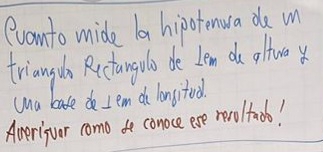 Cuanto mide la hipotenusa de un
triangulo Rectangulo de 1em de altura y
una base de 1em de longitud.
Averiguar como se conoce ese resultado!